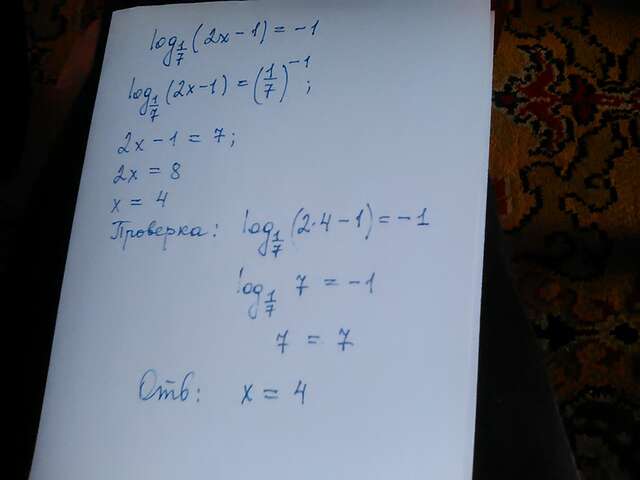 log_{1/7}(2x-1) = -1
log_{1/7}(2x-1) = (1/7)^{-1};
2x - 1 = 7;
2x = 8
x = 4
Проверка: log_{1/7}(2·4-1) = -1
log_{1/7} 7 = -1
7 = 7
Отв: x = 4